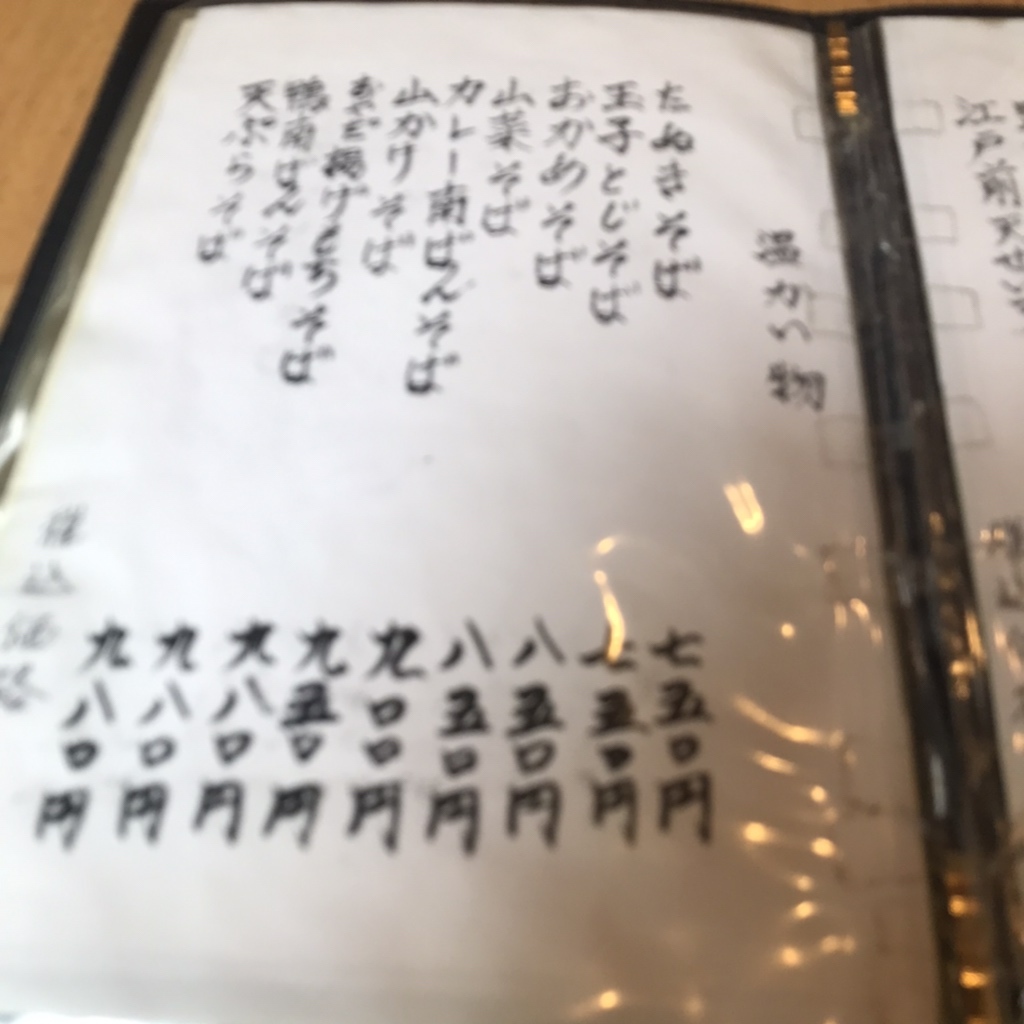 江戸前天せいろ
温かい物
たぬきそば
玉子とじそば
おかめそば
山菜そば
カレー南ばんそば
山かけそば
かき揚げとじそば
鴨南ばんそば
天ぷらそば
七五〇円
七五〇円
八五〇円
八五〇円
九〇〇円
九五〇円
九八〇円
九八〇円
九八〇円
税込価格